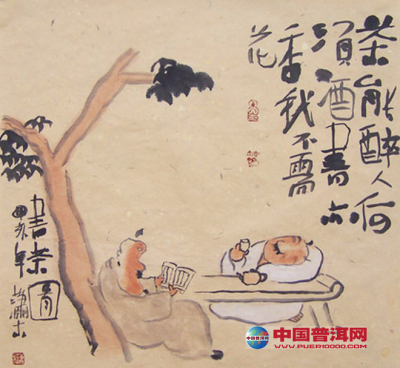 茶能醉人何
須酒書亦
香我不需
花
書茶圖
中国普洱网
WWW.PUER10000.COM